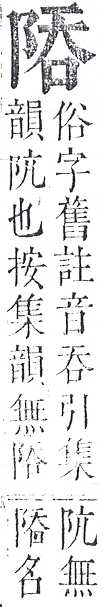 俗字舊註音吞引集
韻阬也按集韻無
阬無
名